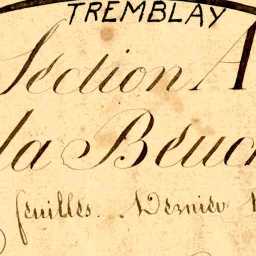 TREMBLAY
Section A
la Beuc
feuilles. Dernier